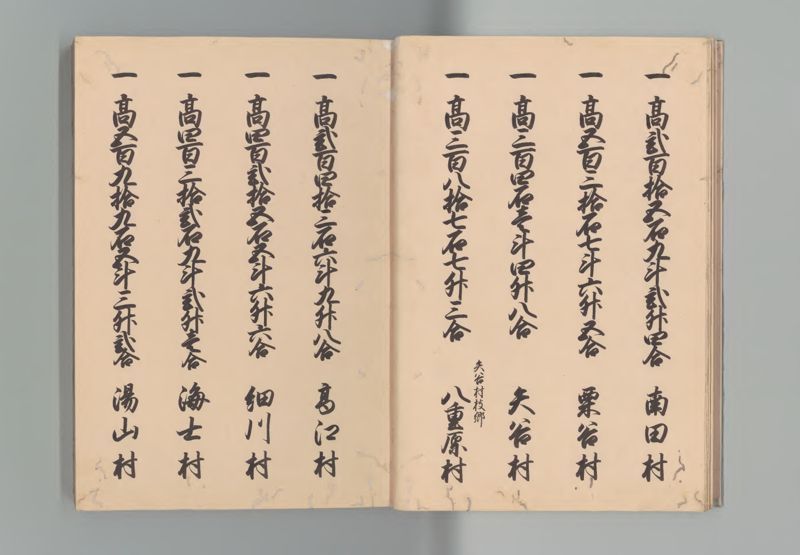 一 高弐百拾五石九斗弐升四合 南田村
一 高五百三拾石七斗六升五合 栗谷村
一 高三百四石壱斗四升八合 矢谷村
矢谷村枝郷
一 高三百八拾七石七升三合 八重原村
一 高弐百四拾三石六斗九升八合 高江村
一 高四百弐拾五石五斗六升六合 細川村
一 高四百三拾弐石九斗弐升壱合 海士村
一 高五百九拾九石五斗三升弐合 湯山村